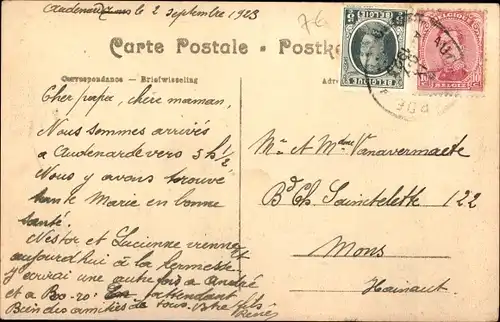 Audenarde le 2 septembre 1923
76
Carte Postale - Postk
Correspondance - Briefwisseling
Adre
Cher papa, chère maman,
Nous sommes arrivés
à Audenarde vers 3 h 1/2
Nous y avons trouvé
tante Marie en bonne
santé.
Nestor et Lucienne viennent
aujourd'hui à la kermesse
J'y écrirai une autre fois à André
et à Bo-zo: En attendant
Bien des amitiés de tous. Votre fils
René
BELGIE
BELGIQUE
5
BELGIQUE
BELGIE
10
Mr et Mdme Vanavermaete
Bd Ch. Sainctelette 122
Mons
Hainaut